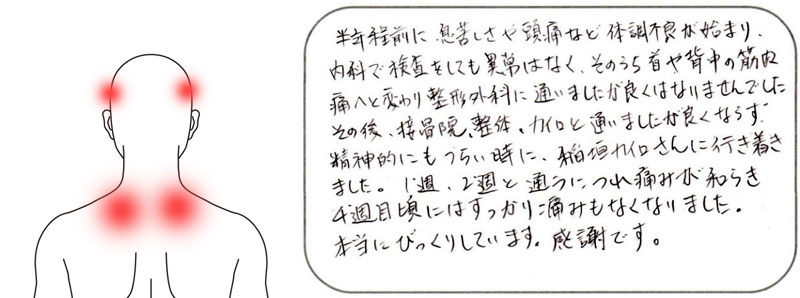 半年程前に息苦しさや頭痛など体調不良が始まり、
内科で検査をしても異常はなく、そのうち首や背中の筋肉
痛へと変わり整形外科に通いましたが良くはなりませんでした
その後、接骨院、整体、カイロと通いましたが良くならず、
精神的にもつらい時に、稲垣カイロさんに行き着き
ました。1週、2週と通うにつれ痛みが和らぎ
4週目頃にはすっかり痛みもなくなりました。
本当にびっくりしています。感謝です。